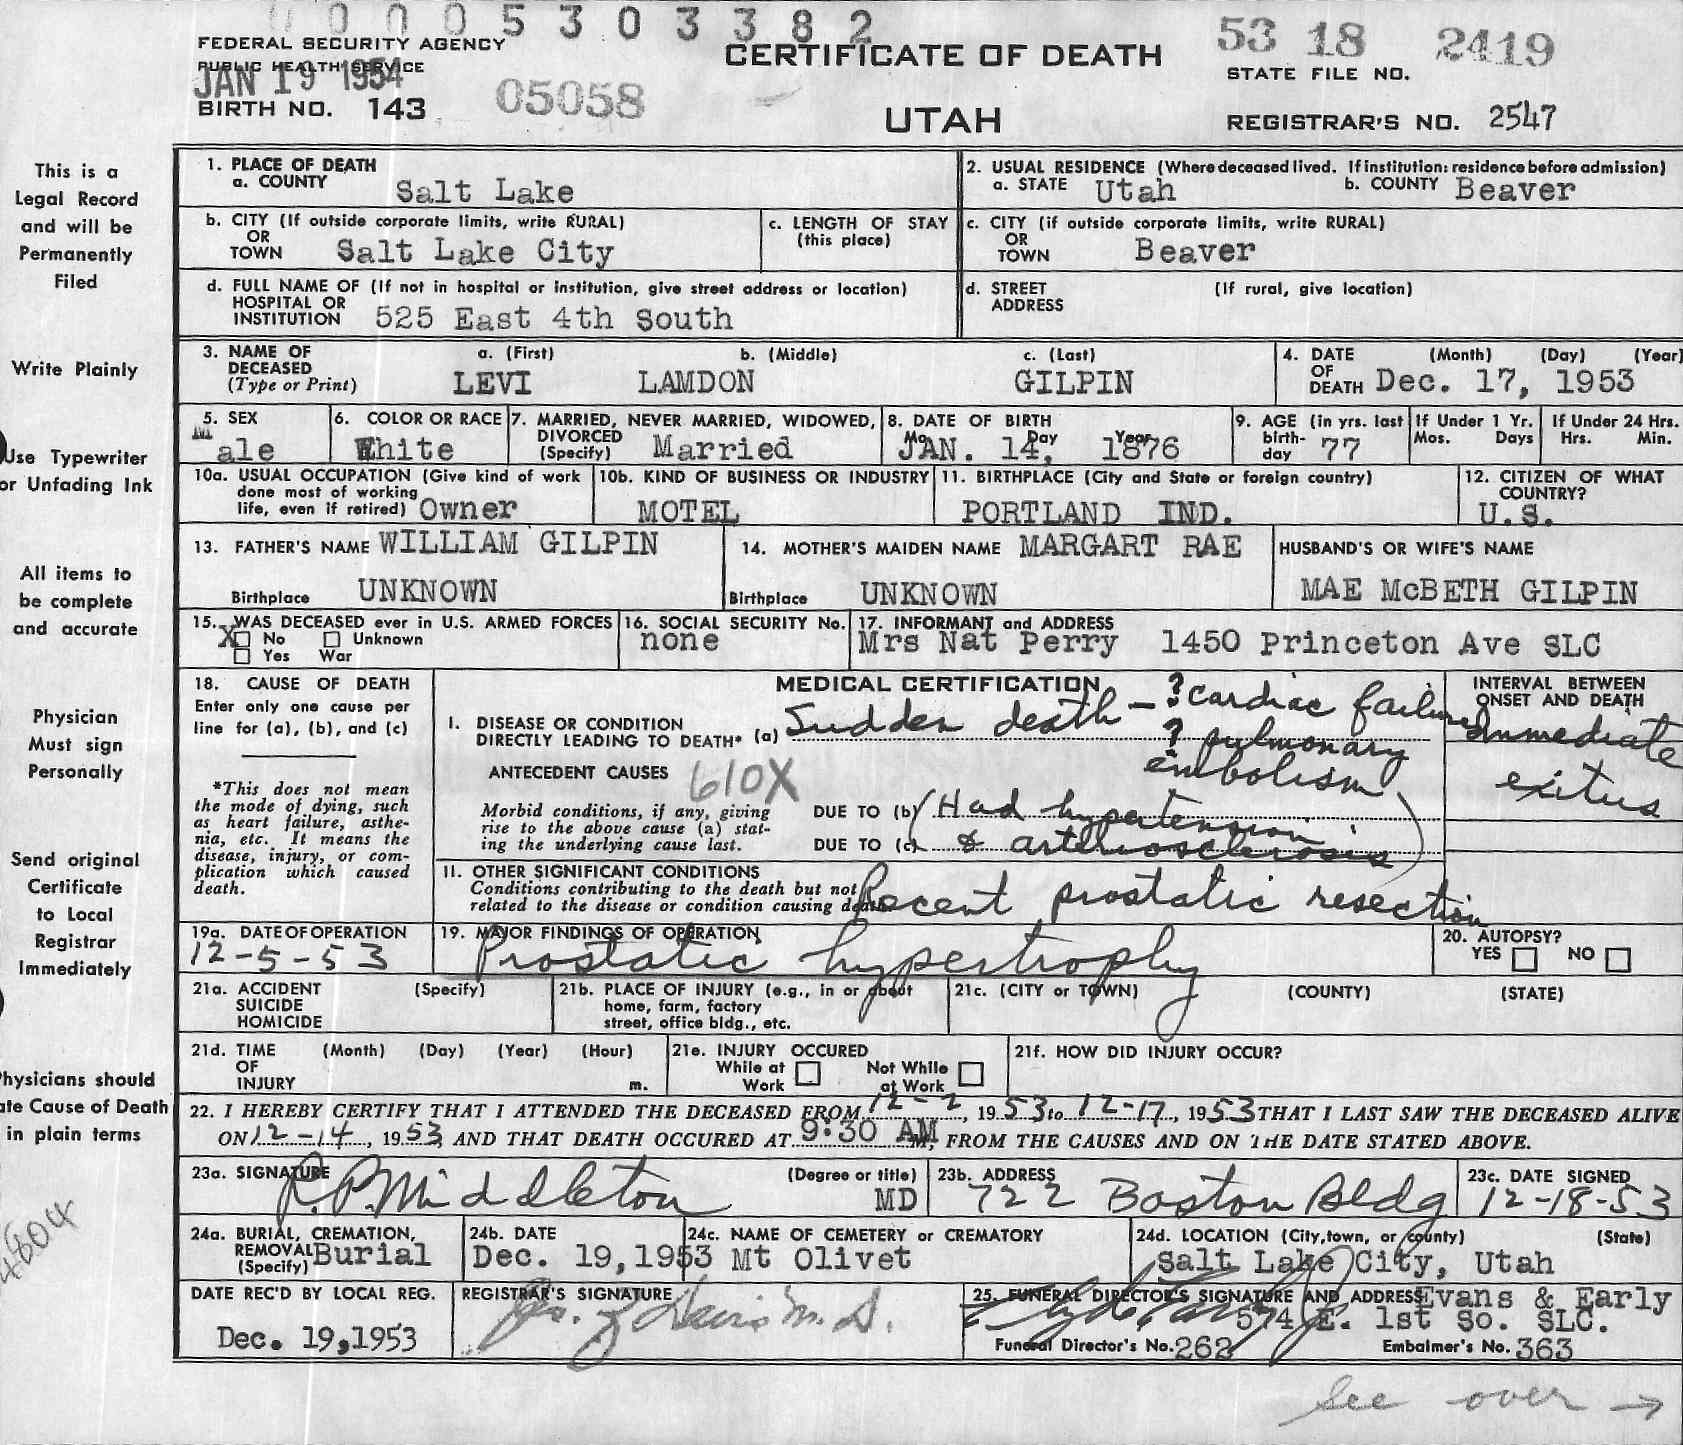 0005303382
FEDERAL SECURITY AGENCY
PUBLIC HEALTH SERVICE
JAN 19 1954
BIRTH NO. 143
05058
CERTIFICATE OF DEATH
UTAH
53 18 2419
STATE FILE NO.
REGISTRAR'S NO. 2547
This is a
Legal Record
and will be
Permanently
Filed
Write Plainly
Use Typewriter
or Unfading Ink
All items to
be complete
and accurate
Physician
Must sign
Personally
Send original
Certificate
to Local
Registrar
Immediately
Physicians should
ate Cause of Death
in plain terms
4604
1. PLACE OF DEATH
a. COUNTY Salt Lake
2. USUAL RESIDENCE (Where deceased lived. If institution: residence before admission)
a. STATE Utah b. COUNTY Beaver
b. CITY (If outside corporate limits, write RURAL)
OR
TOWN Salt Lake City
c. LENGTH OF STAY
(this place)
c. CITY (if outside corporate limits, write RURAL)
OR
TOWN Beaver
d. FULL NAME OF (If not in hospital or institution, give street address or location)
HOSPITAL OR
INSTITUTION 525 East 4th South
d. STREET (If rural, give location)
ADDRESS
3. NAME OF DECEASED (Type or Print)
a. (First) b. (Middle) c. (Last)
LEVI LAMDON GILPIN
4. DATE (Month) (Day) (Year)
OF
DEATH Dec. 17, 1953
5. SEX
Male
6. COLOR OR RACE
White
7. MARRIED, NEVER MARRIED, WIDOWED,
DIVORCED
(Specify) Married
8. DATE OF BIRTH
Mo. Day Year
JAN. 14, 1876
9. AGE (in yrs. last
birth-
day 77
If Under 1 Yr.
Mos. Days
If Under 24 Hrs.
Hrs. Min.
10a. USUAL OCCUPATION (Give kind of work
done most of working
life, even if retired) Owner
10b. KIND OF BUSINESS OR INDUSTRY
MOTEL
11. BIRTHPLACE (City and State or foreign country)
PORTLAND IND.
12. CITIZEN OF WHAT
COUNTRY?
U.S.
13. FATHER'S NAME WILLIAM GILPIN
Birthplace UNKNOWN
14. MOTHER'S MAIDEN NAME MARGART RAE
Birthplace UNKNOWN
HUSBAND'S OR WIFE'S NAME
MAE McBETH GILPIN
15. WAS DECEASED ever in U.S. ARMED FORCES
X No Unknown
Yes War
16. SOCIAL SECURITY No.
none
17. INFORMANT and ADDRESS
Mrs Nat Perry 1450 Princeton Ave SLC
18. CAUSE OF DEATH
Enter only one cause per
line for (a), (b), and (c)
*This does not mean
the mode of dying, such
as heart failure, asthe-
nia, etc. It means the
disease, injury, or com-
plication which caused
death.
MEDICAL CERTIFICATION
I. DISEASE OR CONDITION
DIRECTLY LEADING TO DEATH* (a) Sudden death - ? cardiac failure
? pulmonary
embolism
ANTECEDENT CAUSES 610X
Morbid conditions, if any, giving
rise to the above cause (a) stat-
ing the underlying cause last.
DUE TO (b) (Had hypertension
DUE TO (c) & arteriosclerosis)
INTERVAL BETWEEN
ONSET AND DEATH
Immediate
exitus
11. OTHER SIGNIFICANT CONDITIONS
Conditions contributing to the death but not
related to the disease or condition causing death.
Recent prostatic resection
19a. DATE OF OPERATION
12-5-53
19. MAJOR FINDINGS OF OPERATION
Prostatic hypertrophy
20. AUTOPSY?
YES NO
21a. ACCIDENT (Specify)
SUICIDE
HOMICIDE
21b. PLACE OF INJURY (e.g., in or about
home, farm, factory
street, office bldg., etc.
21c. (CITY or TOWN) (COUNTY) (STATE)
21d. TIME (Month) (Day) (Year) (Hour)
OF
INJURY m.
21e. INJURY OCCURED
While at Work
Not While at Work
21f. HOW DID INJURY OCCUR?
22. I HEREBY CERTIFY THAT I ATTENDED THE DECEASED FROM 12-2, 1953 to 12-17, 1953 THAT I LAST SAW THE DECEASED ALIVE
ON 12-14, 1953, AND THAT DEATH OCCURED AT 9:30 AM, FROM THE CAUSES AND ON THE DATE STATED ABOVE.
23a. SIGNATURE (Degree or title)
R.P. Middleton MD
23b. ADDRESS
722 Boston Bldg
23c. DATE SIGNED
12-18-53
24a. BURIAL, CREMATION,
REMOVAL
(Specify) Burial
24b. DATE
Dec. 19,1953
24c. NAME OF CEMETERY or CREMATORY
Mt Olivet
24d. LOCATION (City,town, or county) (State)
Salt Lake City, Utah
DATE REC'D BY LOCAL REG.
Dec. 19,1953
REGISTRAR'S SIGNATURE
Davis M.D.
25. FUNERAL DIRECTOR'S SIGNATURE AND ADDRESS Evans & Early
574 E. 1st So. SLC.
Funeral Director's No. 262 Embalmer's No. 363
See over →